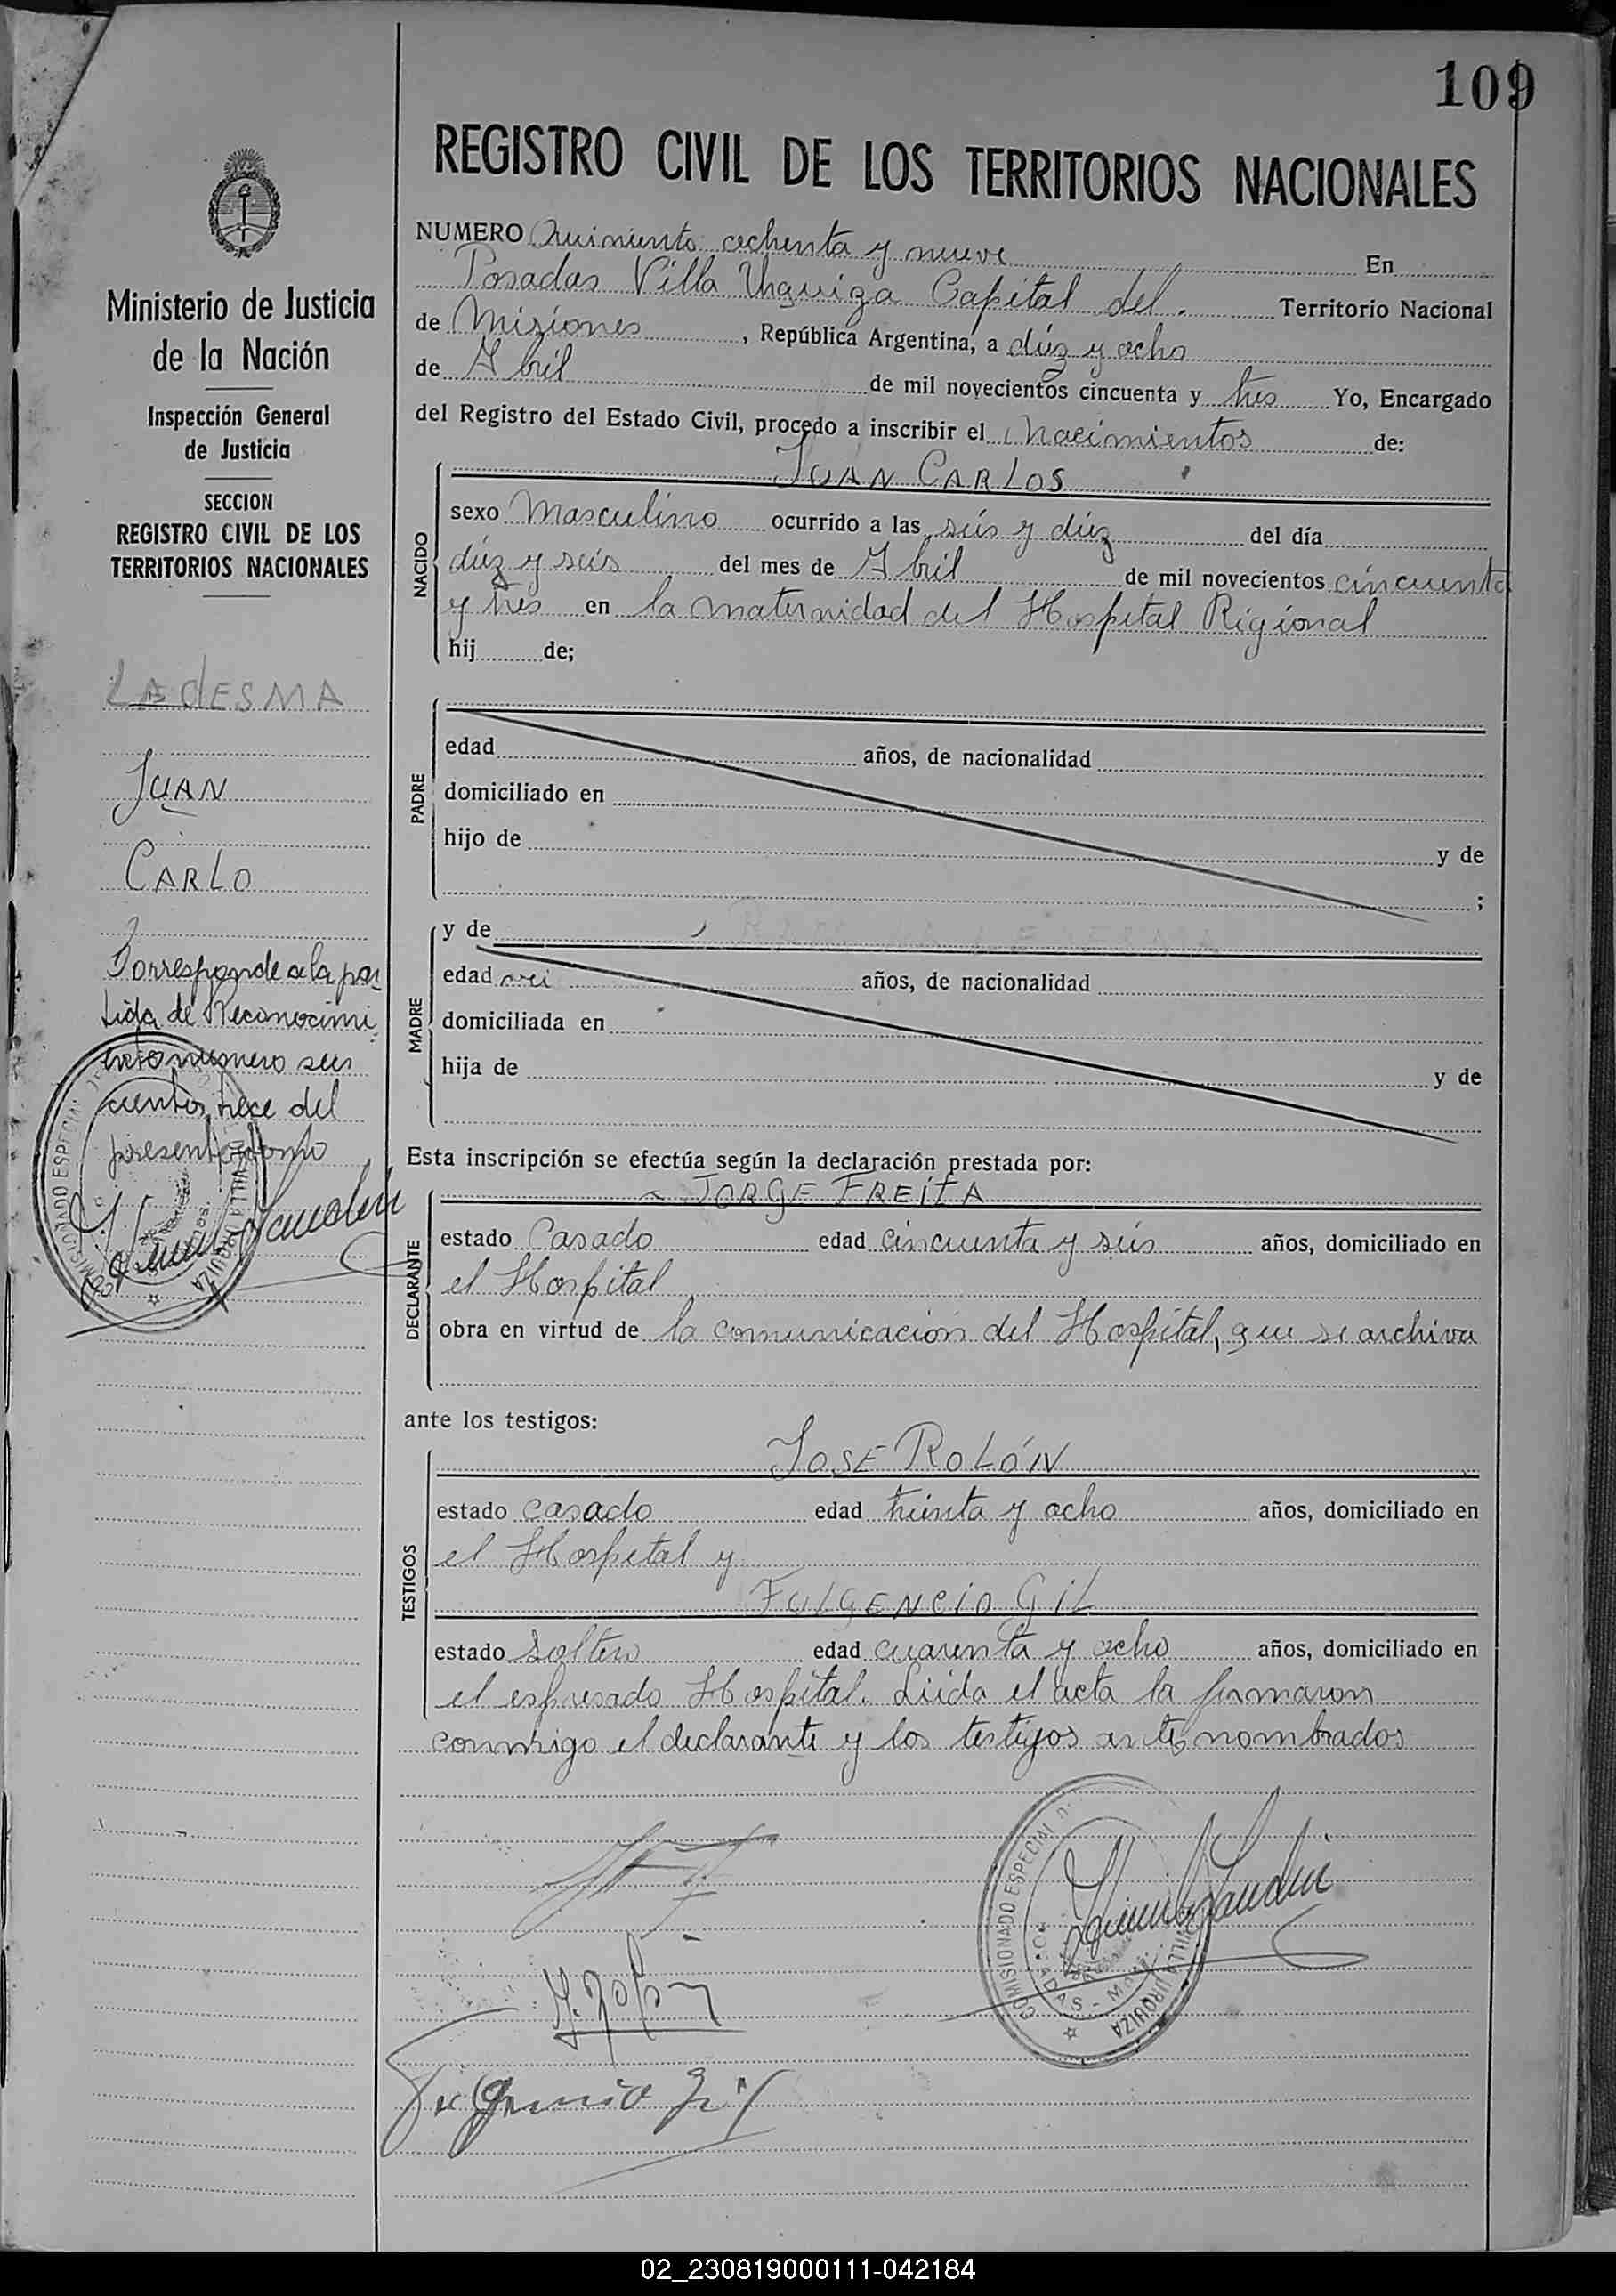 109
REGISTRO CIVIL DE LOS TERRITORIOS NACIONALES
Ministerio de Justicia
de la Nación
Inspección General
de Justicia
SECCION
REGISTRO CIVIL DE LOS
TERRITORIOS NACIONALES
LADESMA
JUAN
CARLO
Corresponde a la par
tida de Reconocimi
ento numero seis
cientos trece del
presente tomo
NUMERO Quiniento ochenta y nueve En
Posadas Villa Urquiza Capital del. Territorio Nacional
de Misiones, República Argentina, a diéz y ocho
de Abril de mil novecientos cincuenta y tres Yo, Encargado
del Registro del Estado Civil, procedo a inscribir el Nacimientos de:
NACIDO
JUAN CARLOS
sexo Masculino ocurrido a las seís y diéz del día
diéz y seis del mes de Abril de mil novecientos cincuenta
y tres en la maternidad del Hospital Rigional
hij de;
PADRE
edad años, de nacionalidad
domiciliado en
hijo de y de
;
MADRE
y de
edad años, de nacionalidad
domiciliada en
hija de y de
Esta inscripción se efectúa según la declaración prestada por:
DECLARANTE
JORGE FREITA
estado Casado edad cincuenta y seis años, domiciliado en
el Hospital
obra en virtud de la comunicación del Hospital, que se archiva
ante los testigos:
TESTIGOS
JOSE ROLÓN
estado casado edad treinta y ocho años, domiciliado en
el Hospital y
FULGENCIO GIL
estado Soltero edad cuarenta y ocho años, domiciliado en
el espresado Hospital. Leida el acta la firmaron
conmigo el declarante y los testigos antes nombrados
COMISIONADO ESPECIAL
VILLA URQUIZA
COMISIONADO ESPECIAL
VILLA URQUIZA
02_230819000111-042184